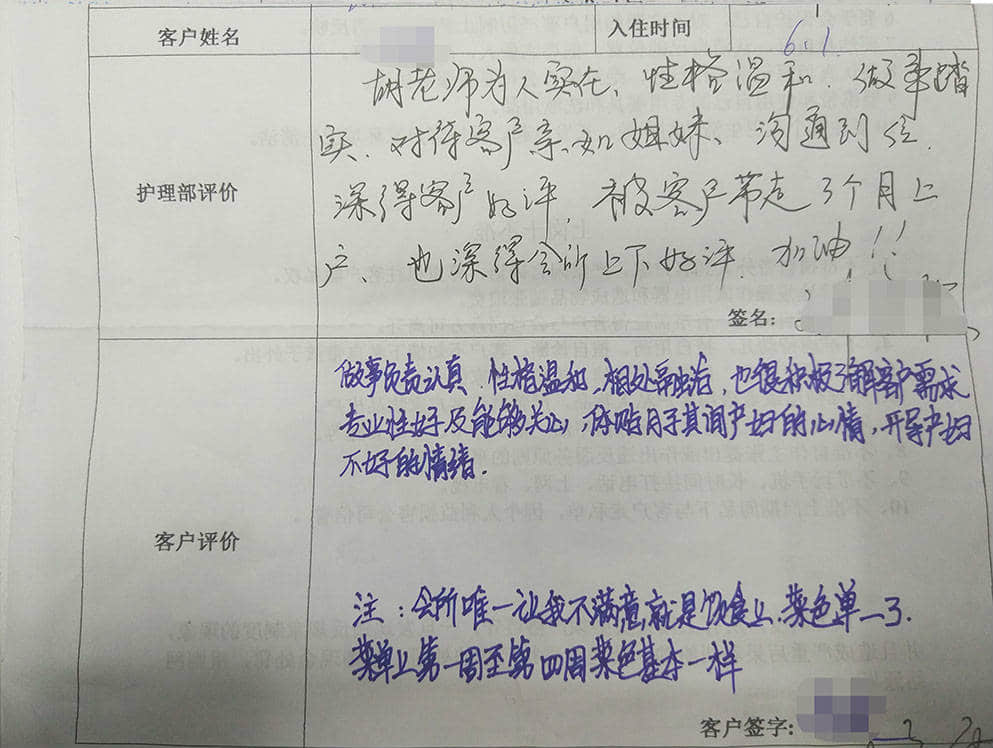 客户姓名 入住时间 6.1
胡老师为人实在、性格温和.做事踏
实、对待客户亲如姐妹、沟通到位.
护理部评价
深得客户好评.被客户带走3个月上
户、也深得会所上下好评.加油!!
签名:
做事负责认真 性格温和,相处融洽,也很积极了解客户需求
专业性好及能够关心,体贴月子其间产妇的心情,开导产妇
不好的情绪.
客户评价
注:会所唯一让我不满意就是饮食上.菜色单一了.
菜单上第一周至第四周菜色基本一样
客户签字: